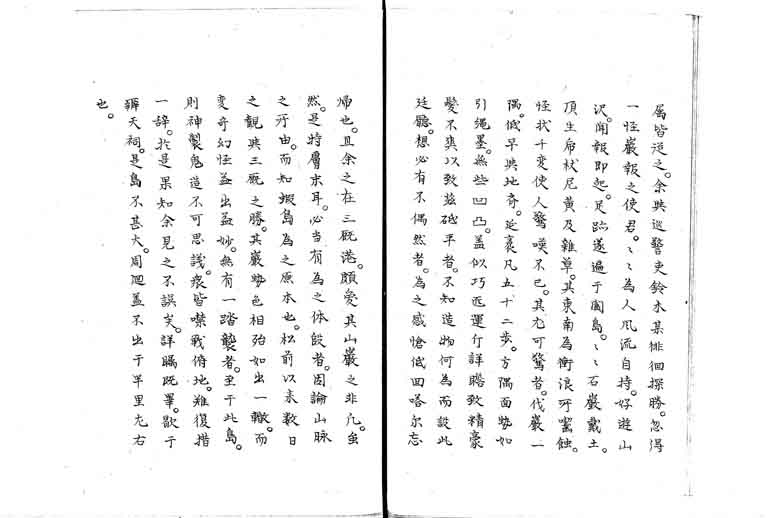 属皆從之。余與巡警吏鈴木某徘徊探勝。忽得
一怪巖報之使君。〻〻為人風流自持。好遊山
沢。聞報即起。足跡遂遍于闔島。〻〻石巖戴土。
頂生虎杖尼黄及雜草。其東南為衝浪所囓蝕。
怪状千変使人驚嘆不已。其尤可驚者。伐巖一
隅。低早與地奇。延袤凡五十二歩。方隅面勢如
引縄墨。無些凹凸。蓋似巧匠運斤詳贍致精豪
髪不爽以致茲砥平者。不知造物何為而設此
廷聽。想必有不偶然者。為之感愴低回嗒尓忘
帰也。且余之在三厩港。頗愛其山巖之非凡。虽
然。是特層末耳。必当有為之体段者。因論山脉
之所由。而知蝦島為之原本也。松前以来数日
之観與三厩之勝。其巖勢色相殆如出一轍。而
変奇幻怪益出益妙。無有一踏襲者。至于此島。
則神製鬼造不可思議。衆皆噤戦俯地。難復措
一辞。於是果知余見之不誤矣。詳矚既畢。歇于
辨天祠。是島不甚大。周廻蓋不出于半里尢右
也。